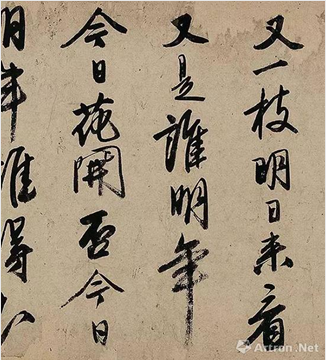 又一枝明日来看
又是誰明年
今日花開否今日
明年誰得
Artron.Net